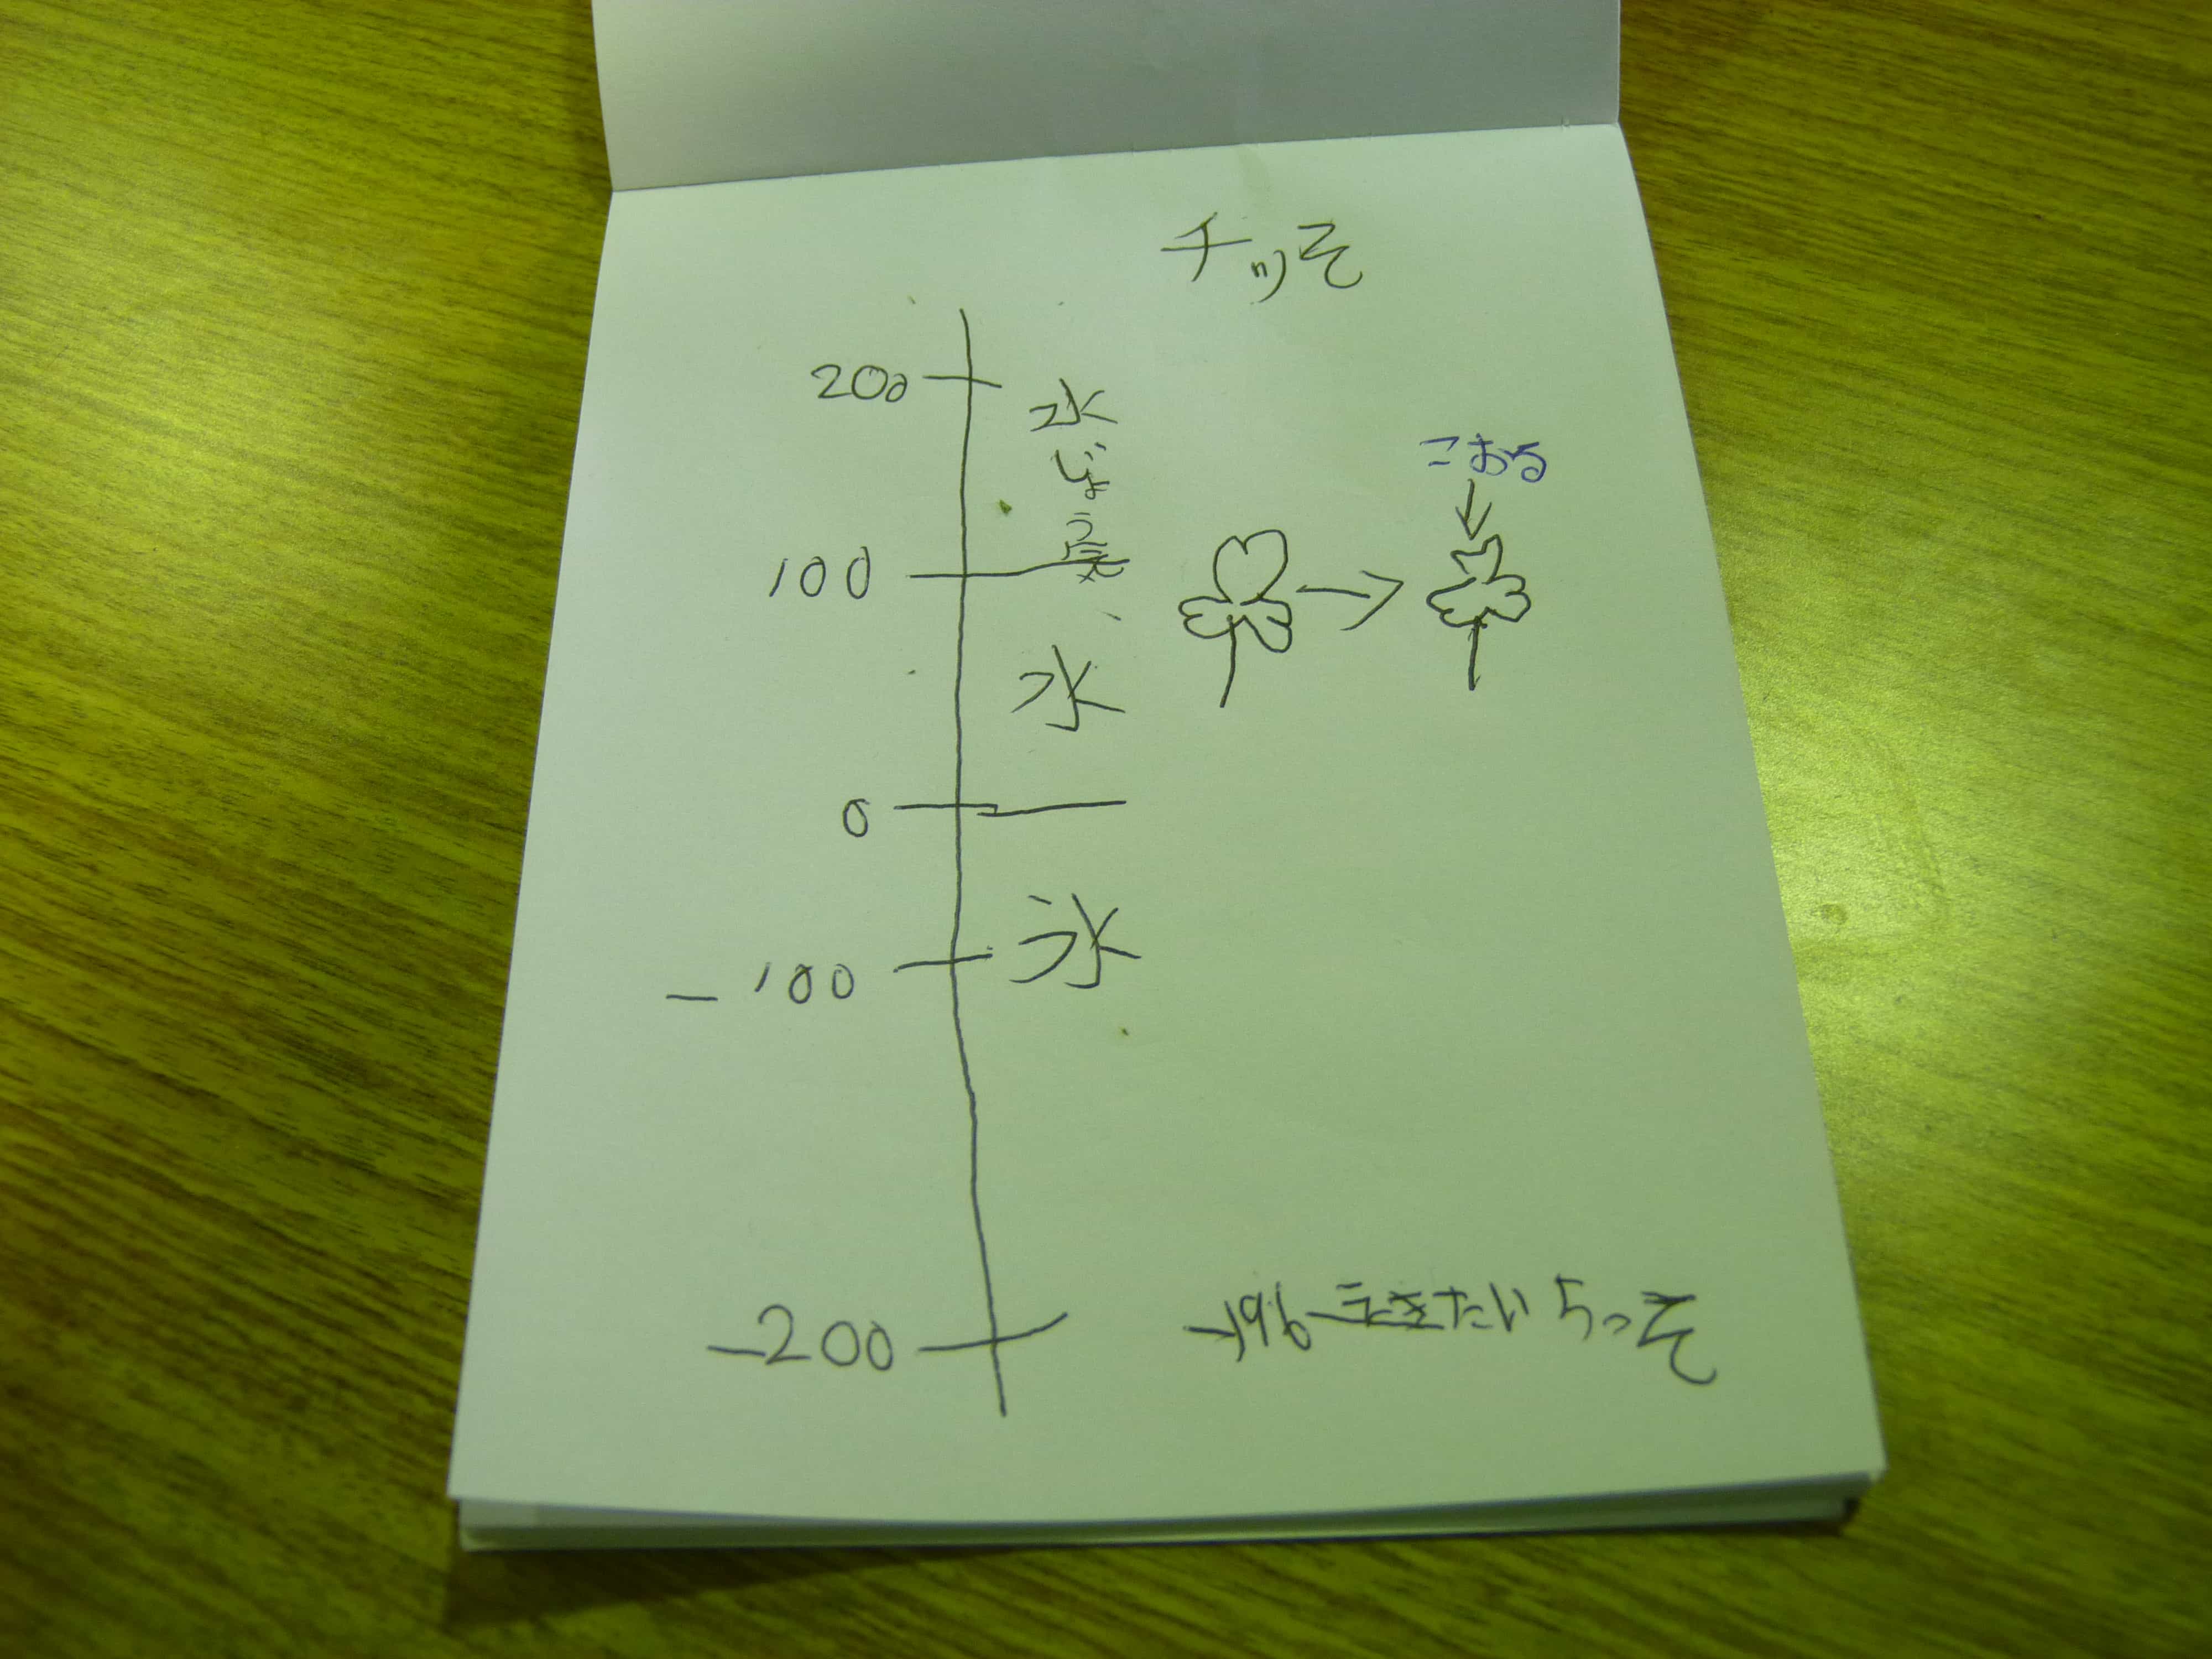 チッそ
200
水じょう気
こおる
100
水
0
氷
-100
-200
-196 えきたいちっそ